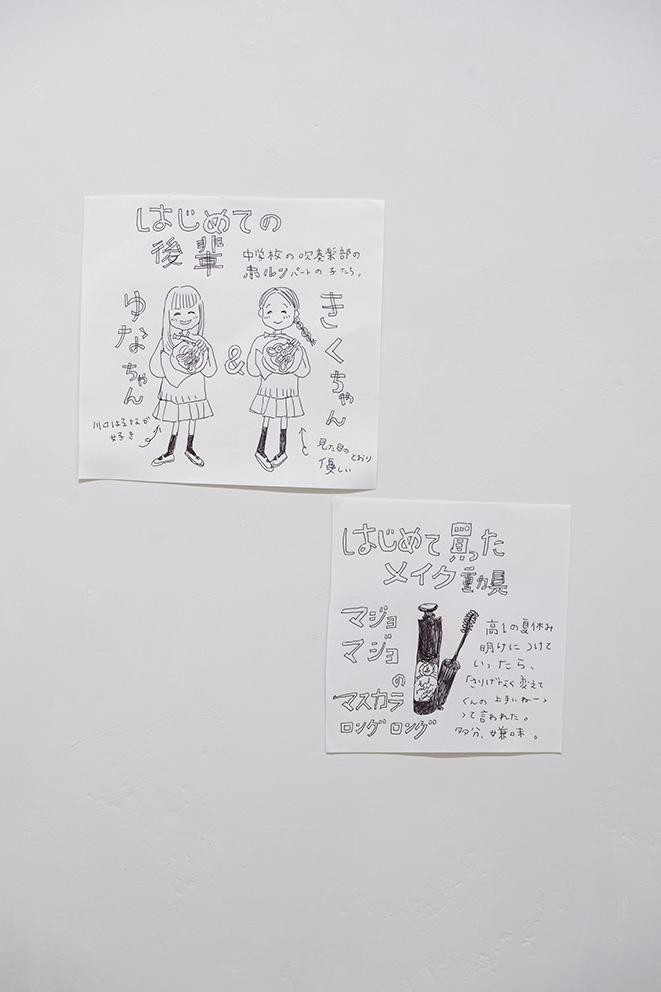 はじめての
後輩
中学校の吹奏楽部の
ホルンパートの子たち。
ゆなちゃん
&
きくちゃん
川口はるなが
好き
見た目のとおり
優しい
はじめて買った
メイク動具
マジョ
マジョ
の
マスカラ
ロングロング
高1の夏休み
明けにつけて
いったら、
「さりげなく変えて
くんの上手いねーっ
って言われた。
多分、嫌味。